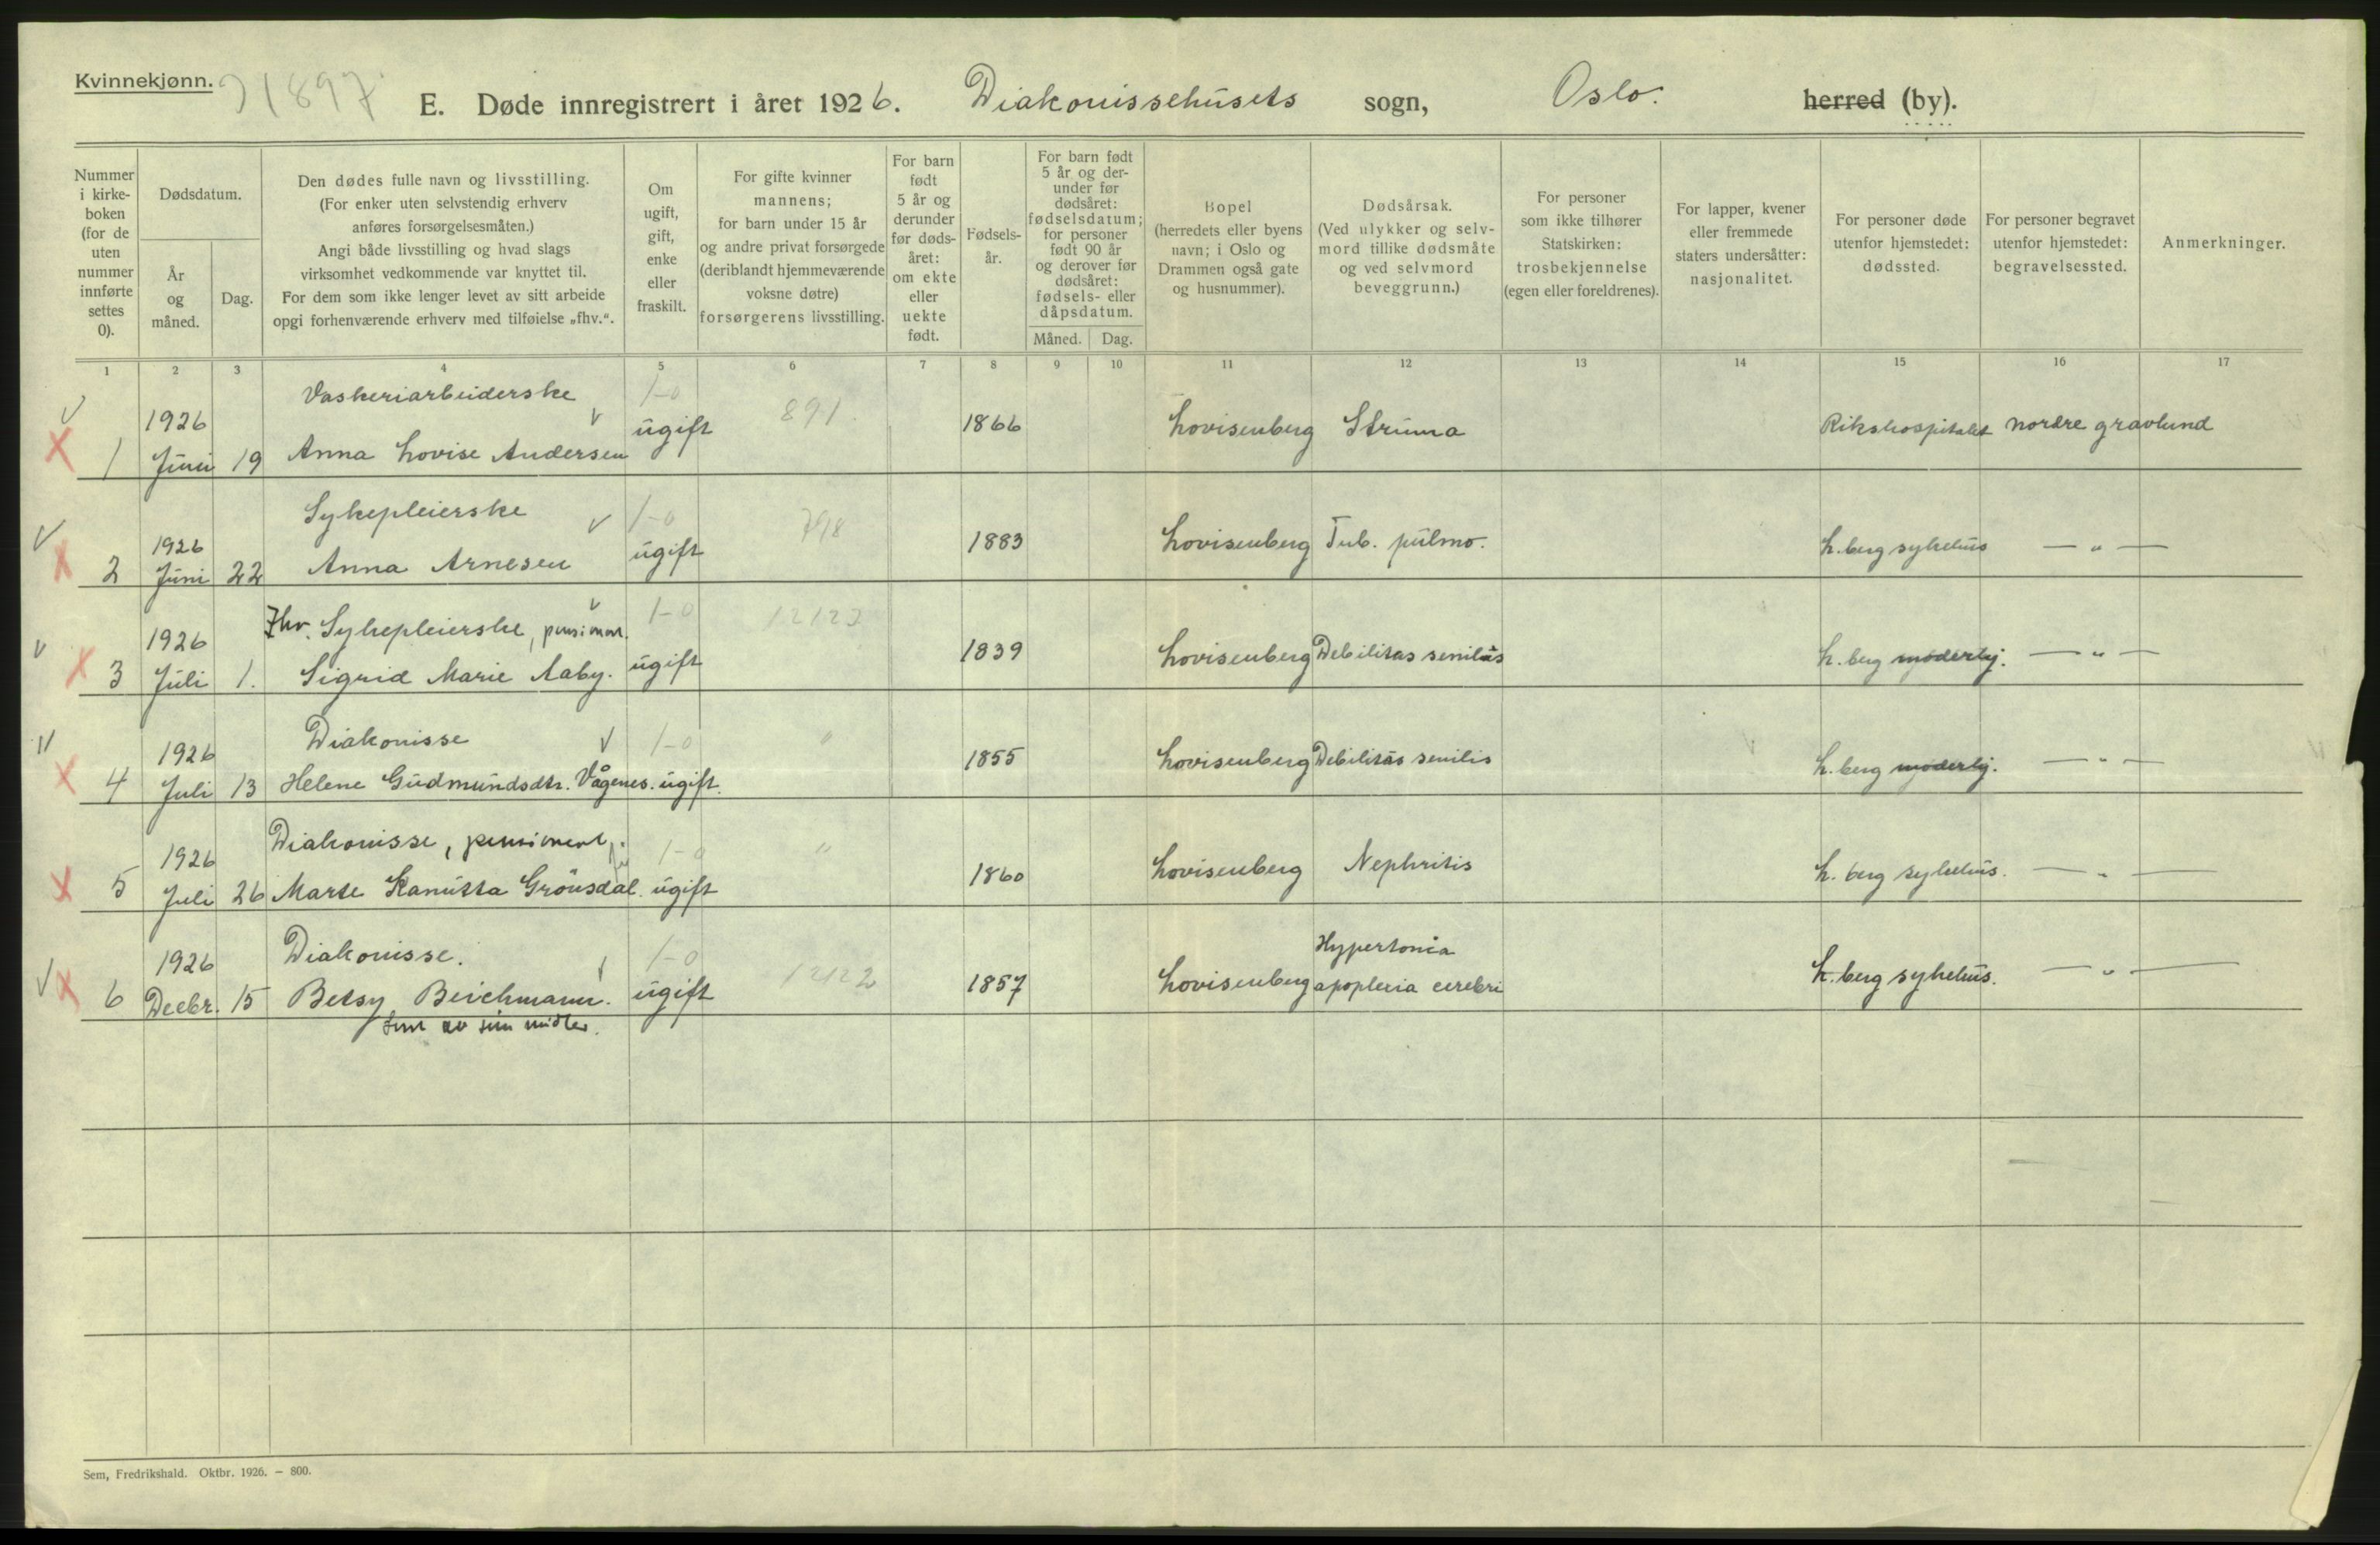 Kvinnekjønn.
31897
E. Døde innregistrert i året 1926. Diakonissehusets sogn, Oslo. herred (by).
Nummer i kirke-boken (for de uten nummer innførte settes 0).
Dødsdatum.
År og måned.
Dag.
Den dødes fulle navn og livsstilling.
(For enker uten selvstendig erhverv
anføres forsørgelsesmåten.)
Angi både livsstilling og hvad slags
virksomhet vedkommende var knyttet til.
For dem som ikke lenger levet av sitt arbeide
opgi forhenværende erhverv med tilføielse „fhv.“.
Om ugift, gift, enke eller fraskilt.
For gifte kvinner
mannens;
for barn under 15 år
og andre privat forsørgede
(deriblandt hjemmeværende
voksne døtre)
forsørgerens livsstilling.
For barn født 5 år og derunder før døds-året: om ekte eller uekte født.
Fødsels-år.
For barn født 5 år og der-under før dødsåret: fødselsdatum; for personer født 90 år og derover før dødsåret: fødsels- eller dåpsdatum.
Måned. Dag.
Bopel
(herredets eller byens
navn; i Oslo og
Drammen også gate
og husnummer).
Dødsårsak.
(Ved ulykker og selv-
mord tillike dødsmåte
og ved selvmord
beveggrunn.)
For personer
som ikke tilhører
Statskirken:
trosbekjennelse
(egen eller foreldrenes).
For lapper, kvener
eller fremmede
staters undersåtter:
nasjonalitet.
For personer døde
utenfor hjemstedet:
dødssted.
For personer begravet
utenfor hjemstedet:
begravelsessted.
Anmerkninger.
1 2 3 4 5 6 7 8 9 10 11 12 13 14 15 16 17
Vaskeriarbeiderske 1-0
1926 ugift 891 1866 Lovisenberg Struma Rikshospitalet nordre gravlund
1 Juni 19 Anna Lovise Andersen
Sykepleierske 1-0 798
1926 ugift 1883 Lovisenberg Tub. pulmo. L.berg sykehus — " —
2 Juni 22 Anna Arnesen
Fhv. Sykepleierske, pensionert. 1-0 12122
1926 1839 Lovisenberg Debilitas senilis L.berg moderhj. — " —
3 Juli 1. Sigrid Marie Aaby. ugift
Diakonisse 1-0 "
1926 1855 Lovisenberg Debilitas senilis L.berg moderhj. — " —
4 Juli 13 Helene Gudmundsdtr. Vågenes. ugift.
Diakonisse, pensionert. 1-0 "
1926 1860 Lovisenberg Nephritis L.berg sykehus. — " —
5 Juli 26 Marte Kanutta Grönsdal. ugift
Diakonisse. 1-0 Hypertonia
1926 12122 L.berg sykehus. — " —
6 Decbr. 15 Betsy Beichmann. ugift 1857 Lovisenberg apoplexia cerebri
av sine midler.
Sem, Fredrikshald. Oktbr. 1926. — 800.